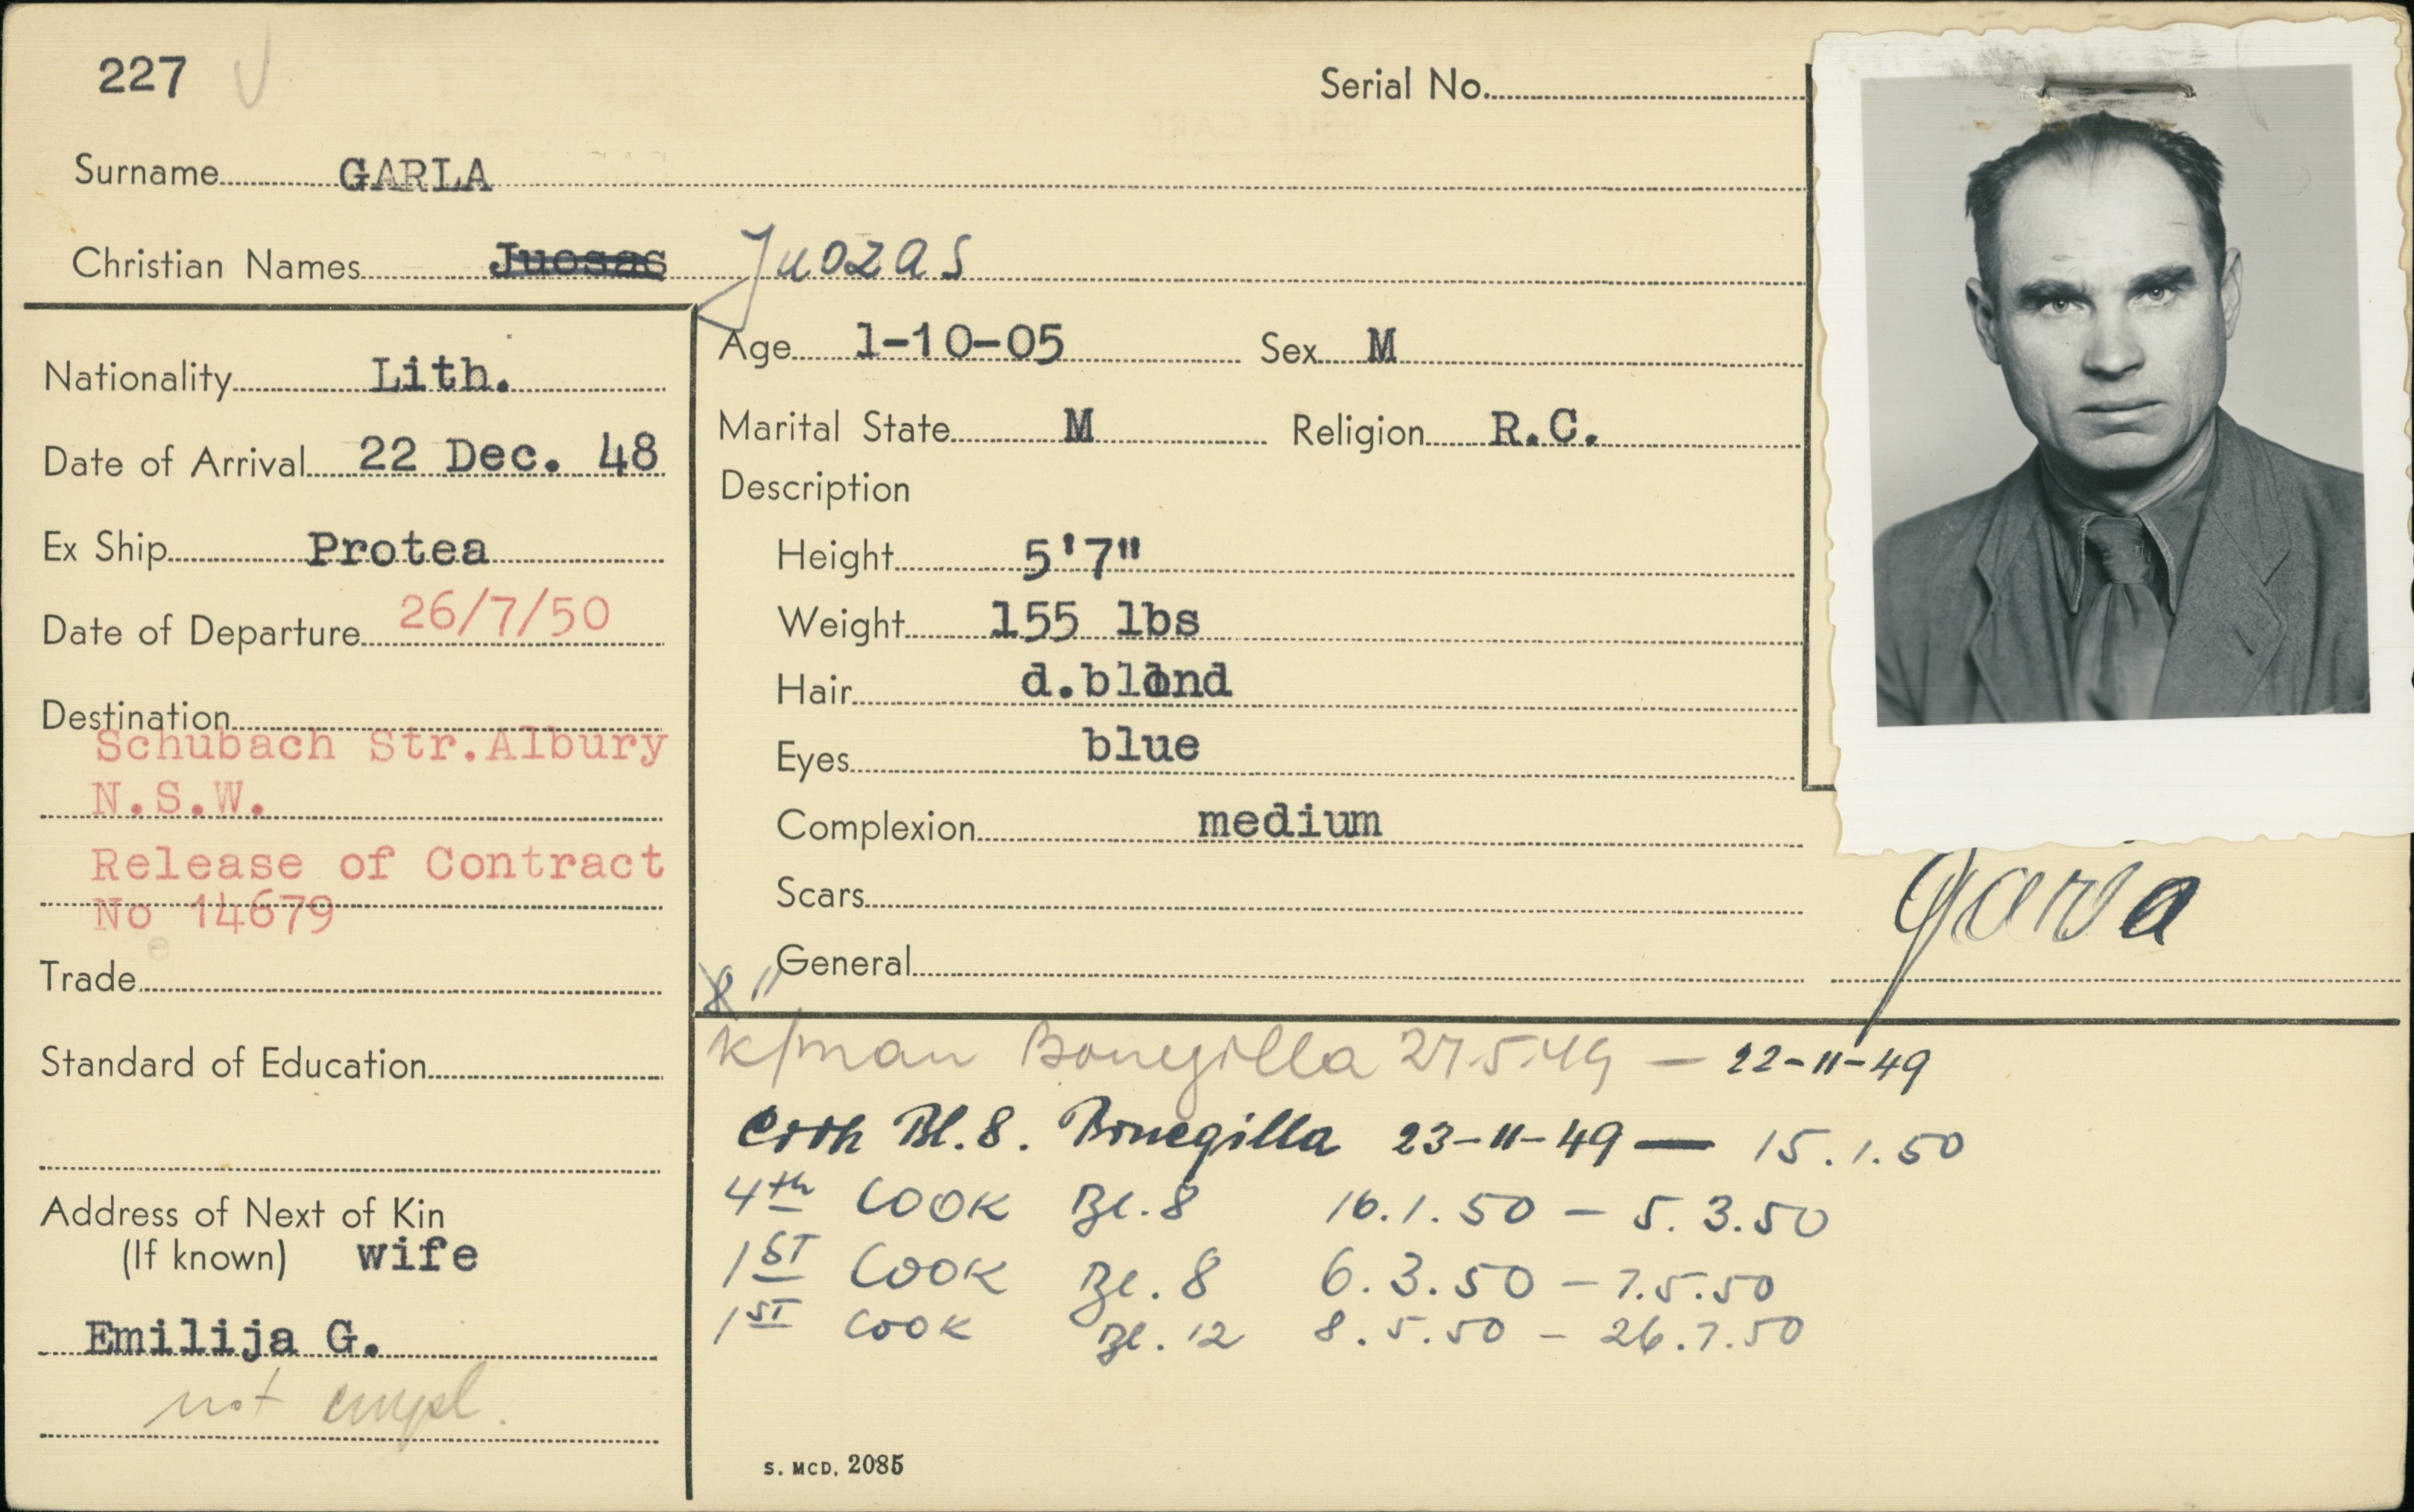 227
Serial No.
Surname GARLA
Christian Names Juosas Juozas
Nationality Lith.
Date of Arrival 22 Dec. 48
Ex Ship Protea
Date of Departure 26/7/50
Destination
Schubach Str.Albury
N.S.W.
Release of Contract
No 14679
Trade
Standard of Education
Address of Next of Kin
(If known) wife
Emilija G.
not empl.
Age 1-10-05 Sex M
Marital State M Religion R.C.
Description
Height 5'7"
Weight 155 lbs
Hair d.blond
Eyes blue
Complexion medium
Scars
General
Garla
k/man Bonegilla 27.5.49 — 22-11-49
Cook Bl.8. Bonegilla 23-11-49 — 15.1.50
4th COOK Bl.8 16.1.50 - 5.3.50
1ST COOK Bl.8 6.3.50 - 7.5.50
1ST COOK Bl.12 8.5.50 - 26.7.50
S. MCD. 2085